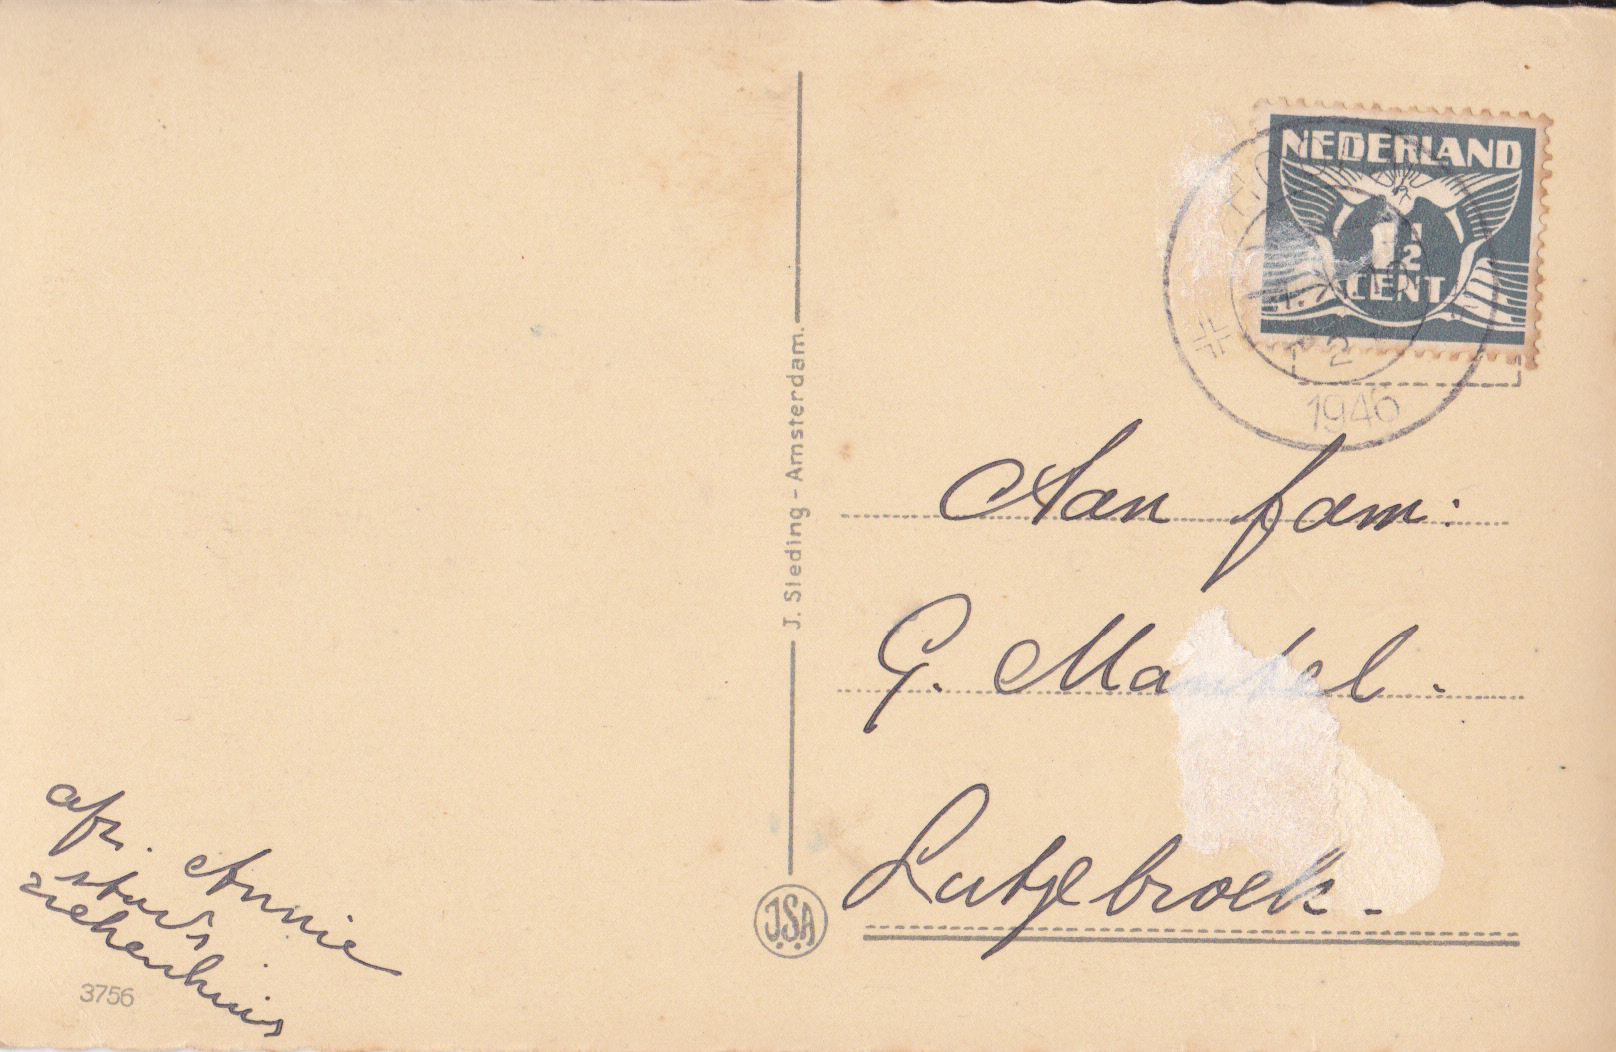 NEDERLAND
1½
CENT
2
1946
J. Sleding - Amsterdam.
Aan fam:
G.
Lutjebroek.
afz. Annie
stads
ziekenhuis
3756
J.S.A